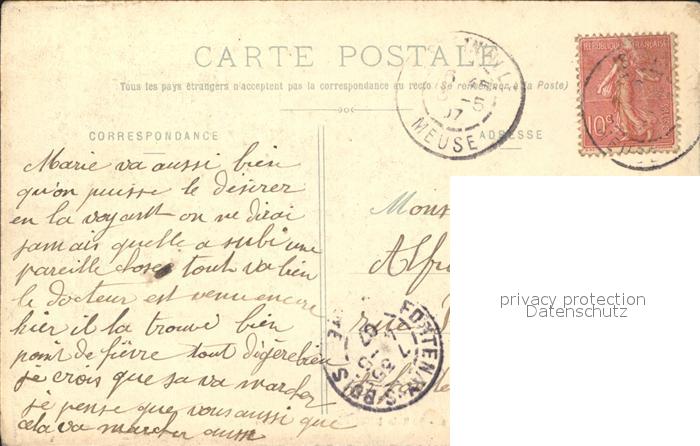 CARTE POSTALE
Tous les pays étrangers n'acceptent pas la correspondance au recto (Se renseigner à la Poste)
CORRESPONDANCE
ADRESSE
MEUSE
07
RÉPUBLIQUE FRANÇAISE
10c
Marie va aussi bien
qu'on puisse le désirer
en la voyant on ne dirai
jamais quelle a subi une
pareille chose tout va bien
le docteur est venu encore
hier il la trouve bien
point de fièvre tout digère bien
je crois que sa va marcher
je pense que vous aussi que
cela va marcher aussi
Mons
Alfr
rue
FONTENAY-S-BOIS
07
privacy protection
Datenschutz